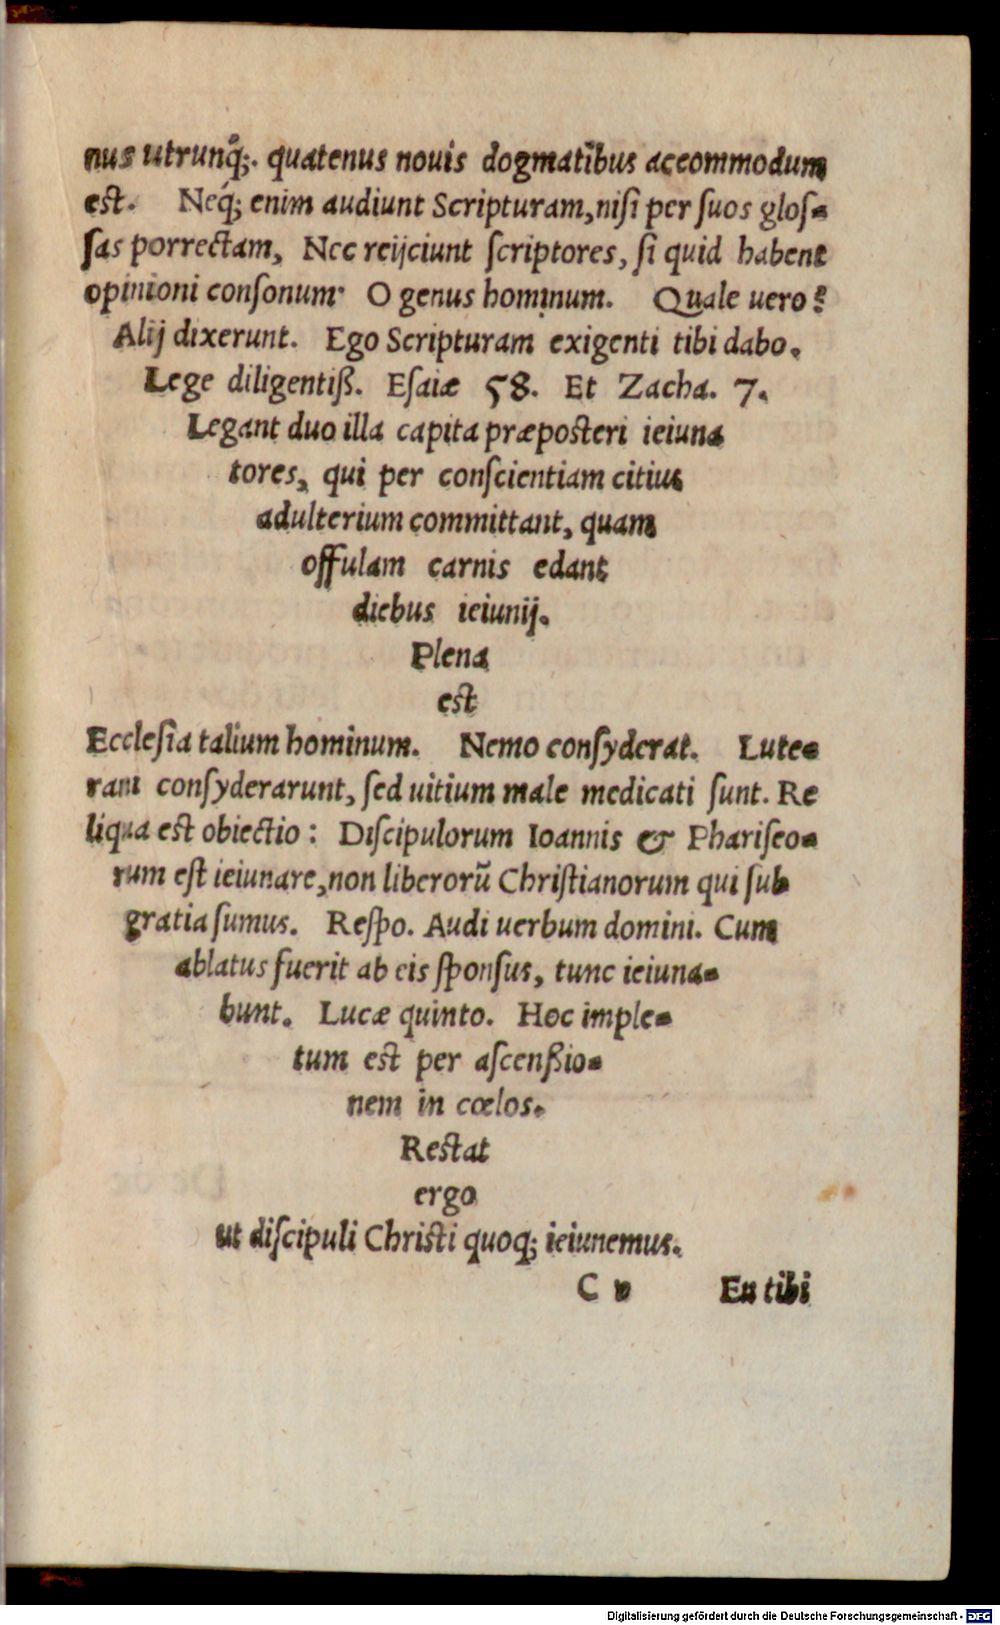 nus utrunq́;. quatenus nouis dogmatibus aceommodum
est. Neq́; enim audiunt Scripturam,niſi per ſuos gloſ-
ſas porrectam, Nec reijciunt ſcriptores, ſi quid habent
opinioni conſonum· O genus hominum. Quale uero?
Alij dixerunt. Ego Scripturam exigenti tibi dabo.
Lege diligentiß. Eſaiæ 58. Et Zacha. 7.
Legant duo illa capita præposteri ieiuna
tores, qui per conſcientiam citius
adulterium committant, quam
offulam carnis edant
diebus ieiunij.
Plena
est
Eccleſia talium hominum. Nemo conſyderat. Lute-
rani conſyderarunt, ſed uitium male medicati ſunt. Re
liqua est obiectio: Diſcipulorum Ioannis & Phariſeo-
rum eſt ieiunare,non liberorũ Chriſtianorum qui ſub
gratia ſumus. Reſpo. Audi uerbum domini. Cum
ablatus fuerit ab eis ſponſus, tunc ieiuna-
bunt. Lucæ quinto. Hoc imple-
tum est per aſcenßio-
nem in cœlos.
Restat
ergo
ut diſcipuli Chriſti quoq; ieiunemus.
C v En tibi
Digitalisierung gefördert durch die Deutsche Forschungsgemeinschaft - DFG